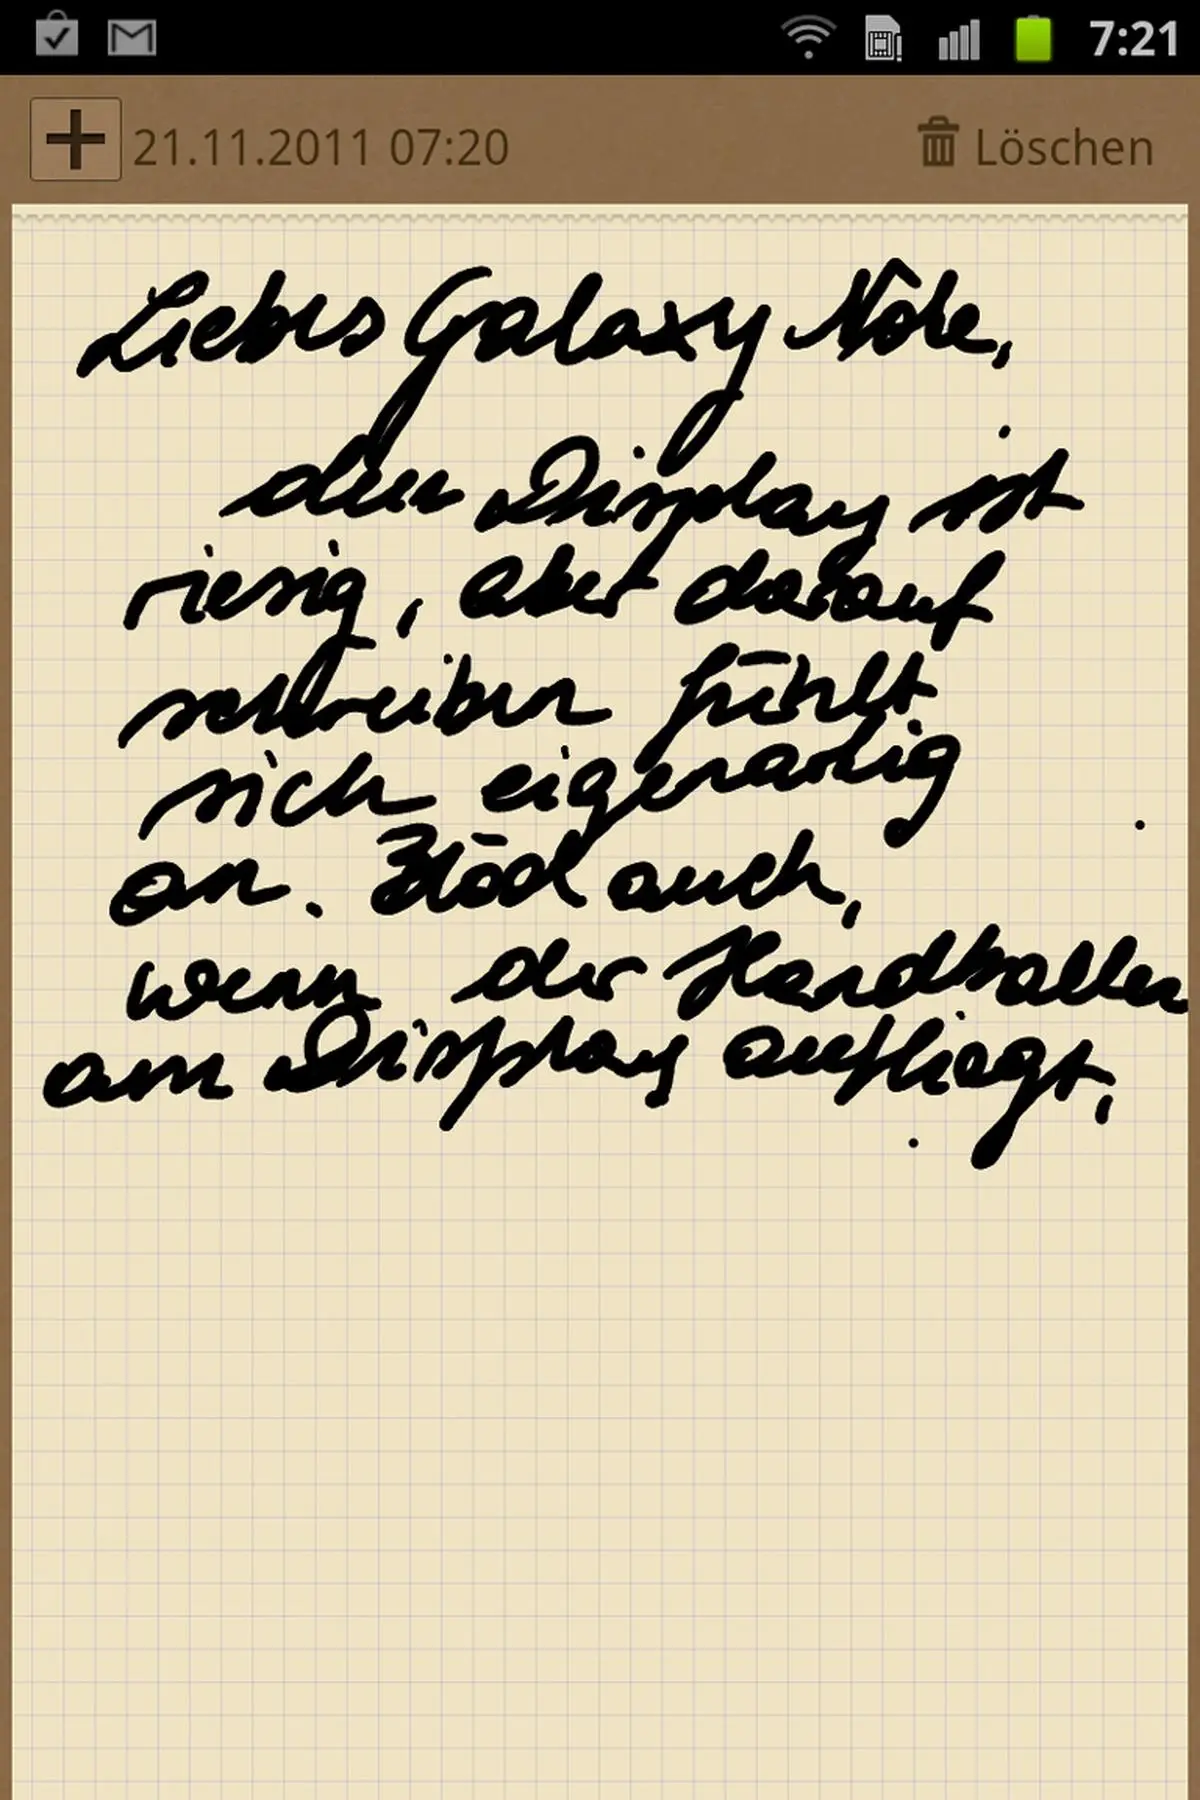 7:21
21.11.2011 07:20
Löschen
Liebes Galaxy Note,
dein Display ist
riesig, aber darauf
schreiben fühlt
sich eigenartig
an. Blöd auch,
wenn der Handballen
am Display aufliegt,